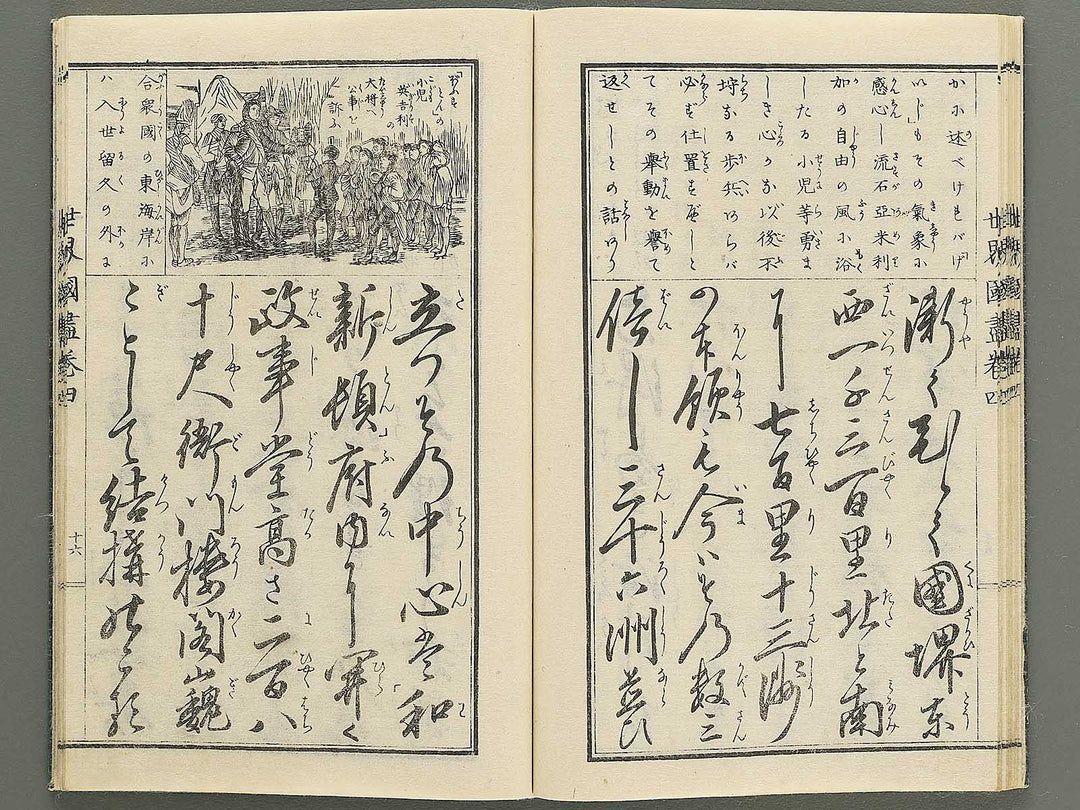 世界國盡卷四
かに述べければ「げ
いじ」もその氣象に
感心し流石亞米利
加の自由の風に浴
したる小児等勇ま
しき心かな以後不
埒なる歩兵あらバ
必ず仕置すべしと
てその擧動を譽て
返せしとの話あり
漸くひらく國堺東
西一千三百里北と南
に七百里十三州
の本領も今ハその数三
倍し三十六洲並び
「ぼすとん」の
小児
英吉利の
大将へ
公事を
訴ふ
合衆國の東海岸に
ハ入世留久の外に
立つその中心は和
新頓府内に開く
政事堂高さ二百八
十尺衛門樓閣巍
ことして結構
世界國盡卷四
十六